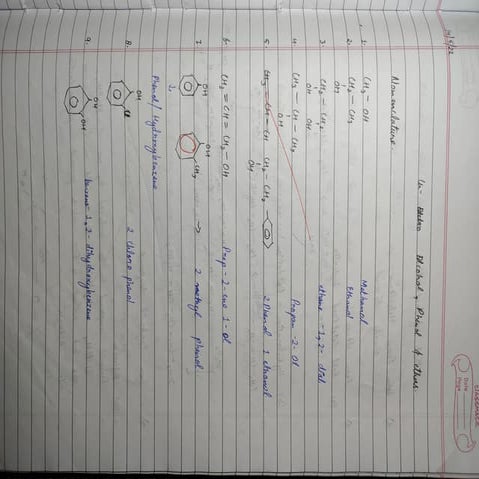 14/5/22
Alcohol, Phenol & ethers
Nomenclature.
1. CH₃ — OH Methanol
2. CH₂ — CH₃ Ethanol
OH
3. CH₂ — CH₂ ethane - 1,2- diol
OH OH
4. CH₃ — CH — CH₃ Propan - 2- Ol
OH
5. CH₃ = CH — CH CH₂ — CH₂ — 2 Phenol 1 ethanol
OH
6. CH₂ = CH = CH₂ — OH Prop - 2 - ene 1 - ol
7. OH OH CH₃ → 2 methyl phenol
Phenol / Hydroxybenzene
8. OH Cl 2 chloro phenol
9. OH OH benzene - 1,2 - dihydroxybenzene
Date
Page